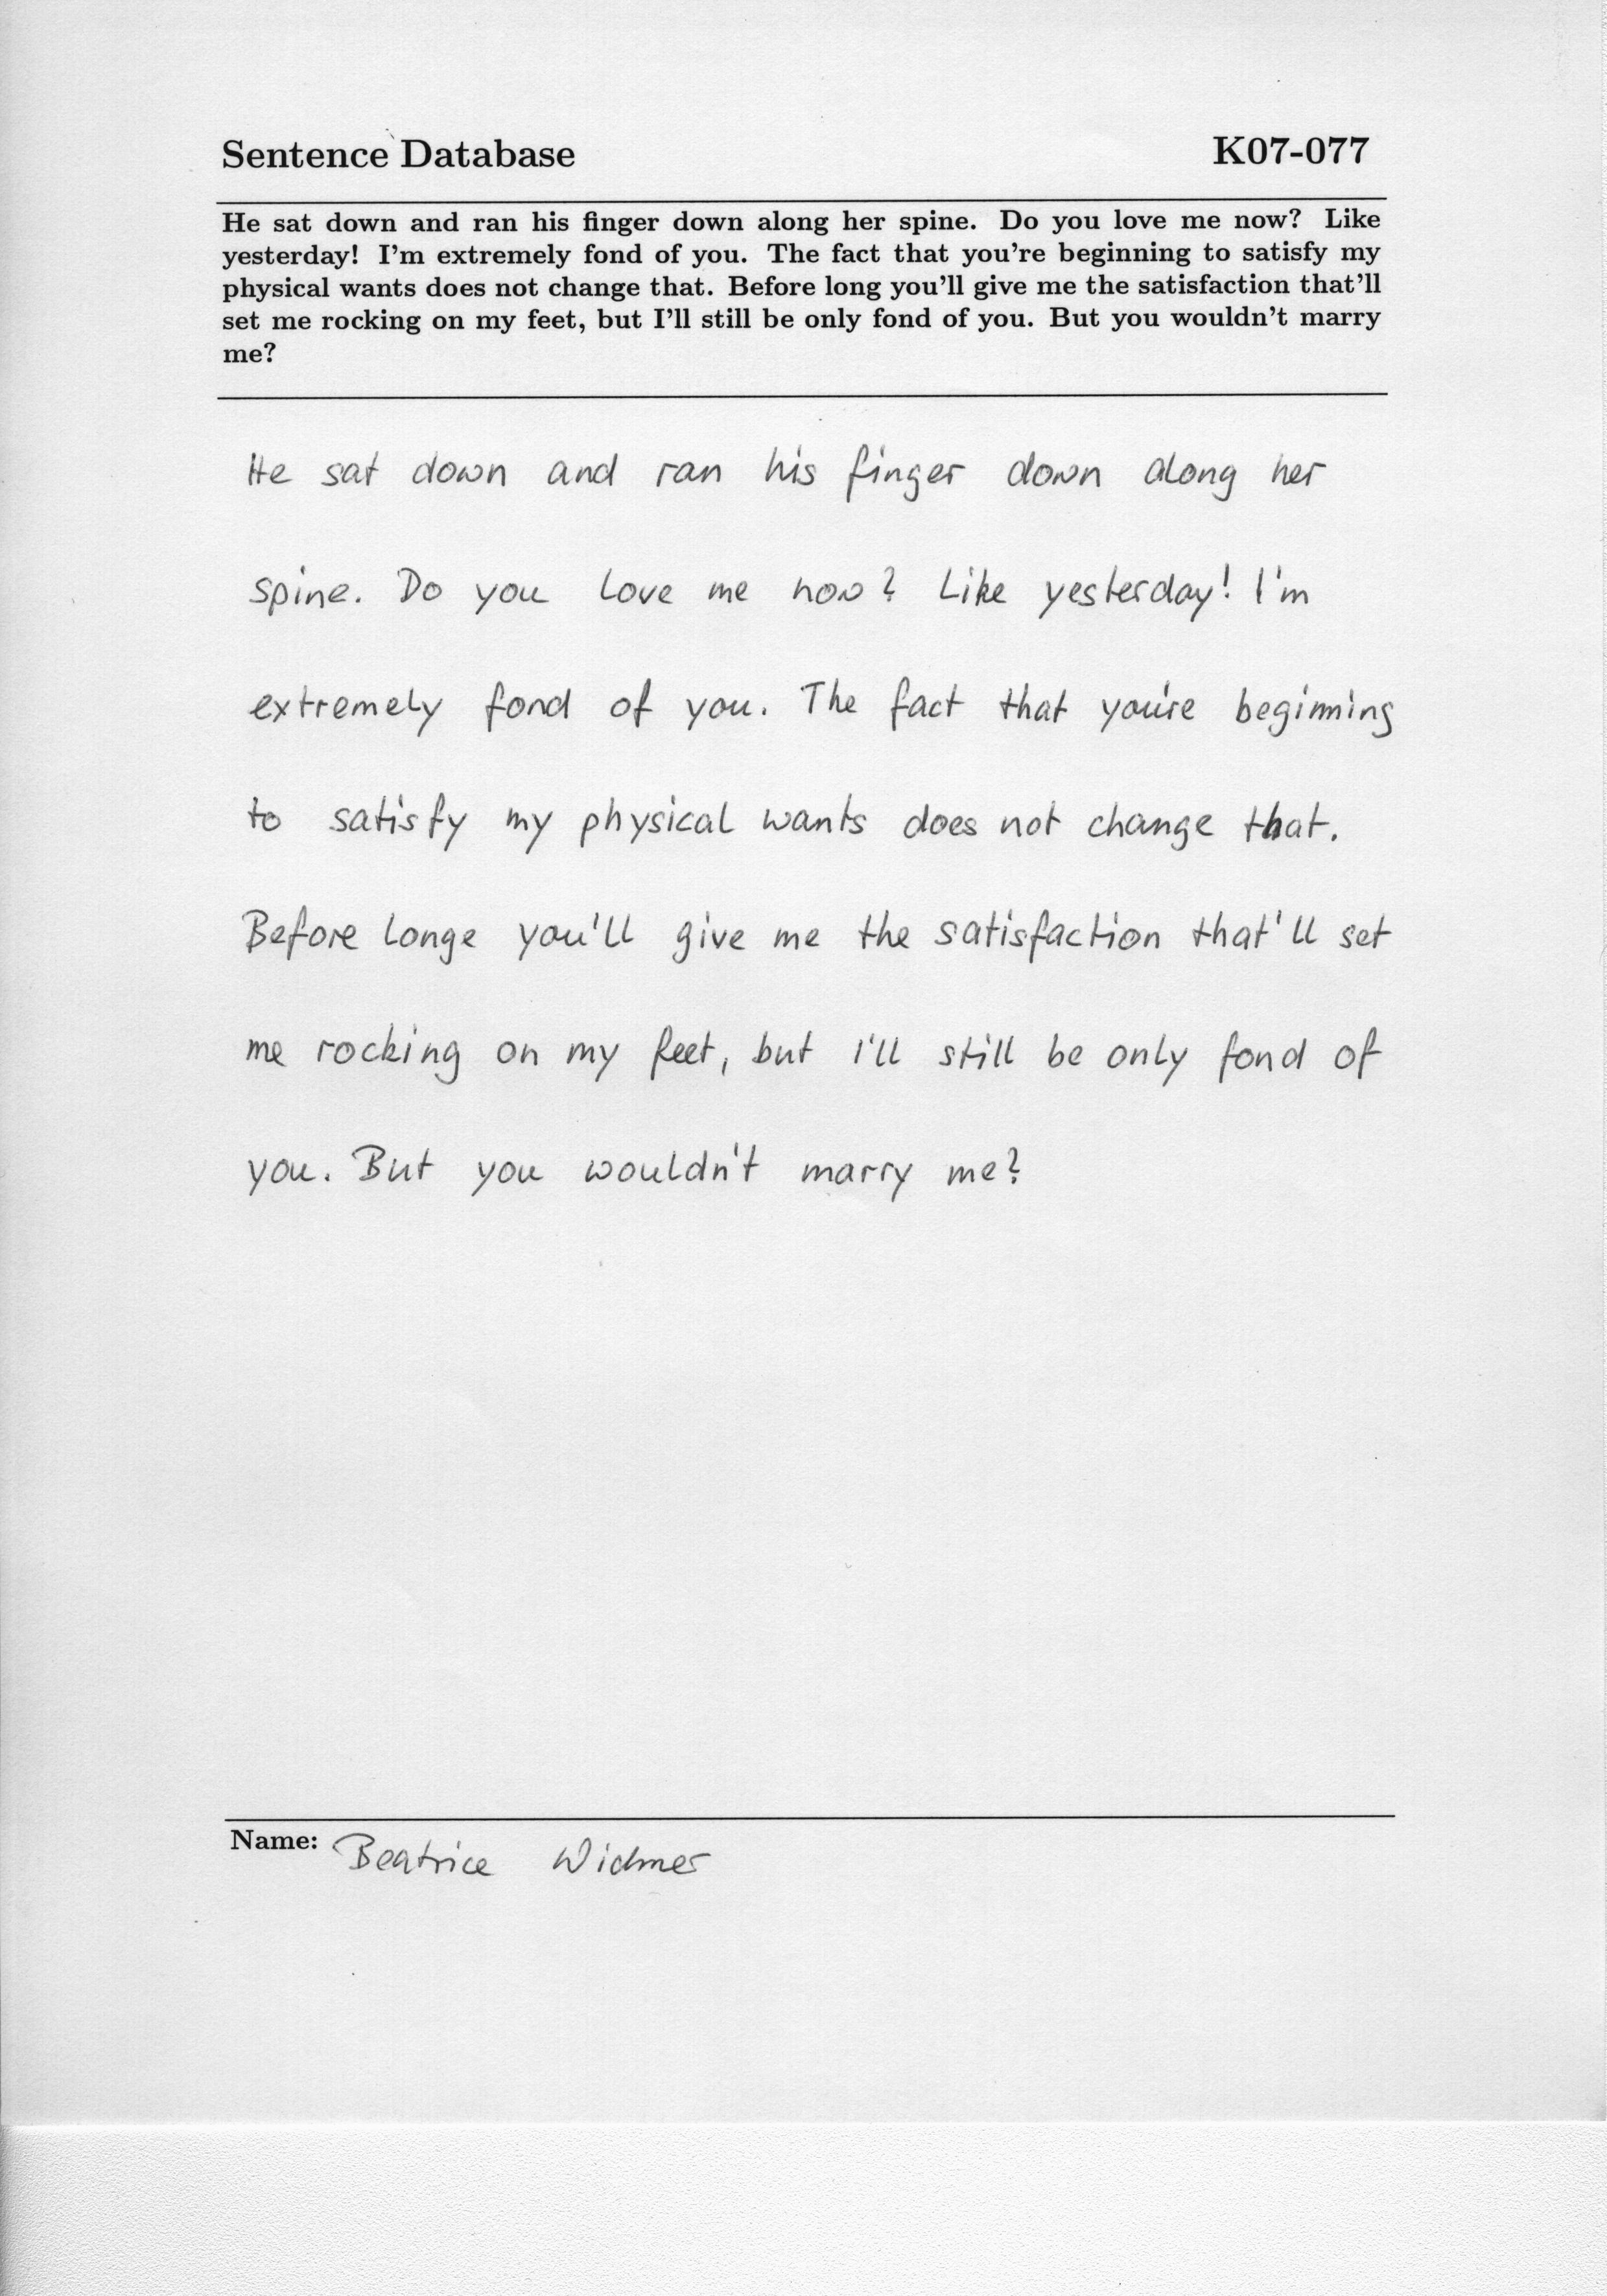 Sentence Database K07-077
He sat down and ran his finger down along her spine. Do you love me now? Like
yesterday! I'm extremely fond of you. The fact that you're beginning to satisfy my
physical wants does not change that. Before long you'll give me the satisfaction that'll
set me rocking on my feet, but I'll still be only fond of you. But you wouldn't marry
me?
He sat down and ran his finger down along her
spine. Do you love me now? Like yesterday! I'm
extremely fond of you. The fact that you're beginning
to satisfy my physical wants does not change that.
Before longe you'll give me the satisfaction that'll set
me rocking on my feet, but I'll still be only fond of
you. But you wouldn't marry me?
Name: Beatrice Widmer